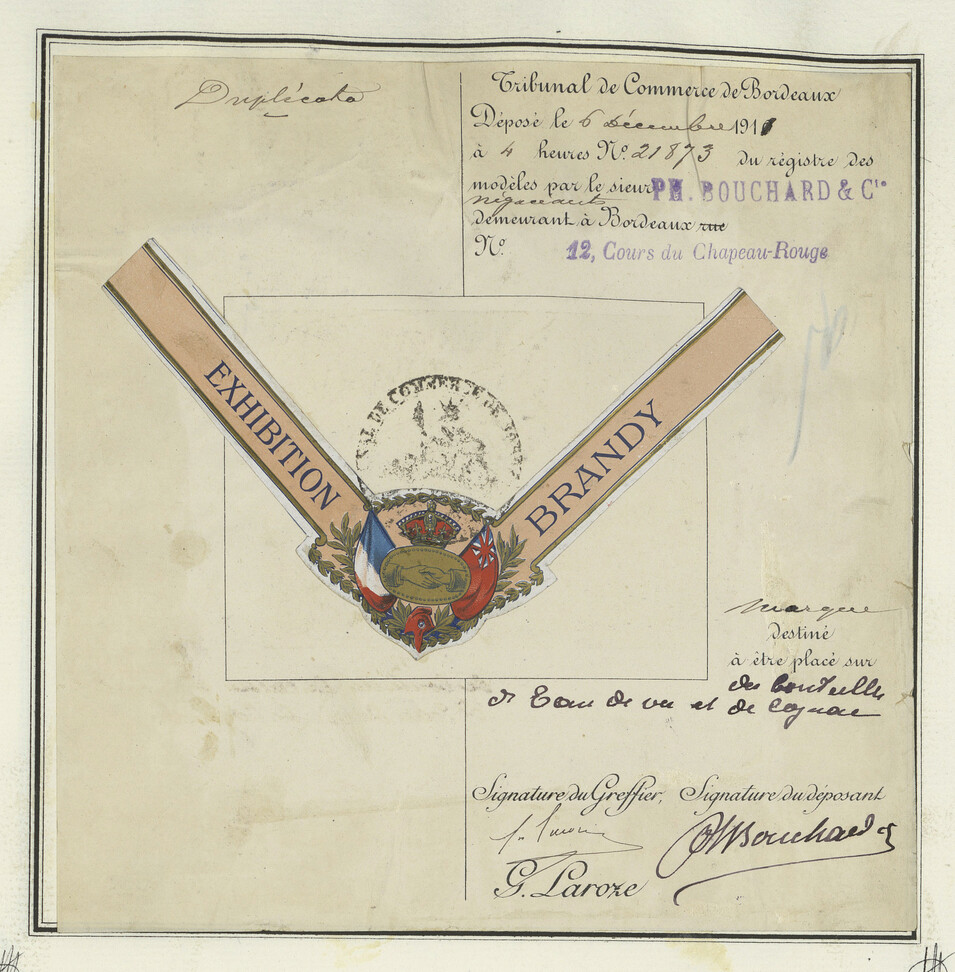 Duplicata
Tribunal de Commerce de Bordeaux
Déposé le 6 décembre 1911
à 4 heures No. 21873 du régistre des
modèles par le sieur PH. BOUCHARD & Cie
négociants
demeurant à Bordeaux rue
No. 12, Cours du Chapeau-Rouge
DE COMMERCE DE
EXHIBITION
BRANDY
marque
destiné
à être placé sur
des bouteilles
d'Eau de vie et de Cognac
Signature du Greffier, Signature du déposant
G. Laroze
PH Bouchard